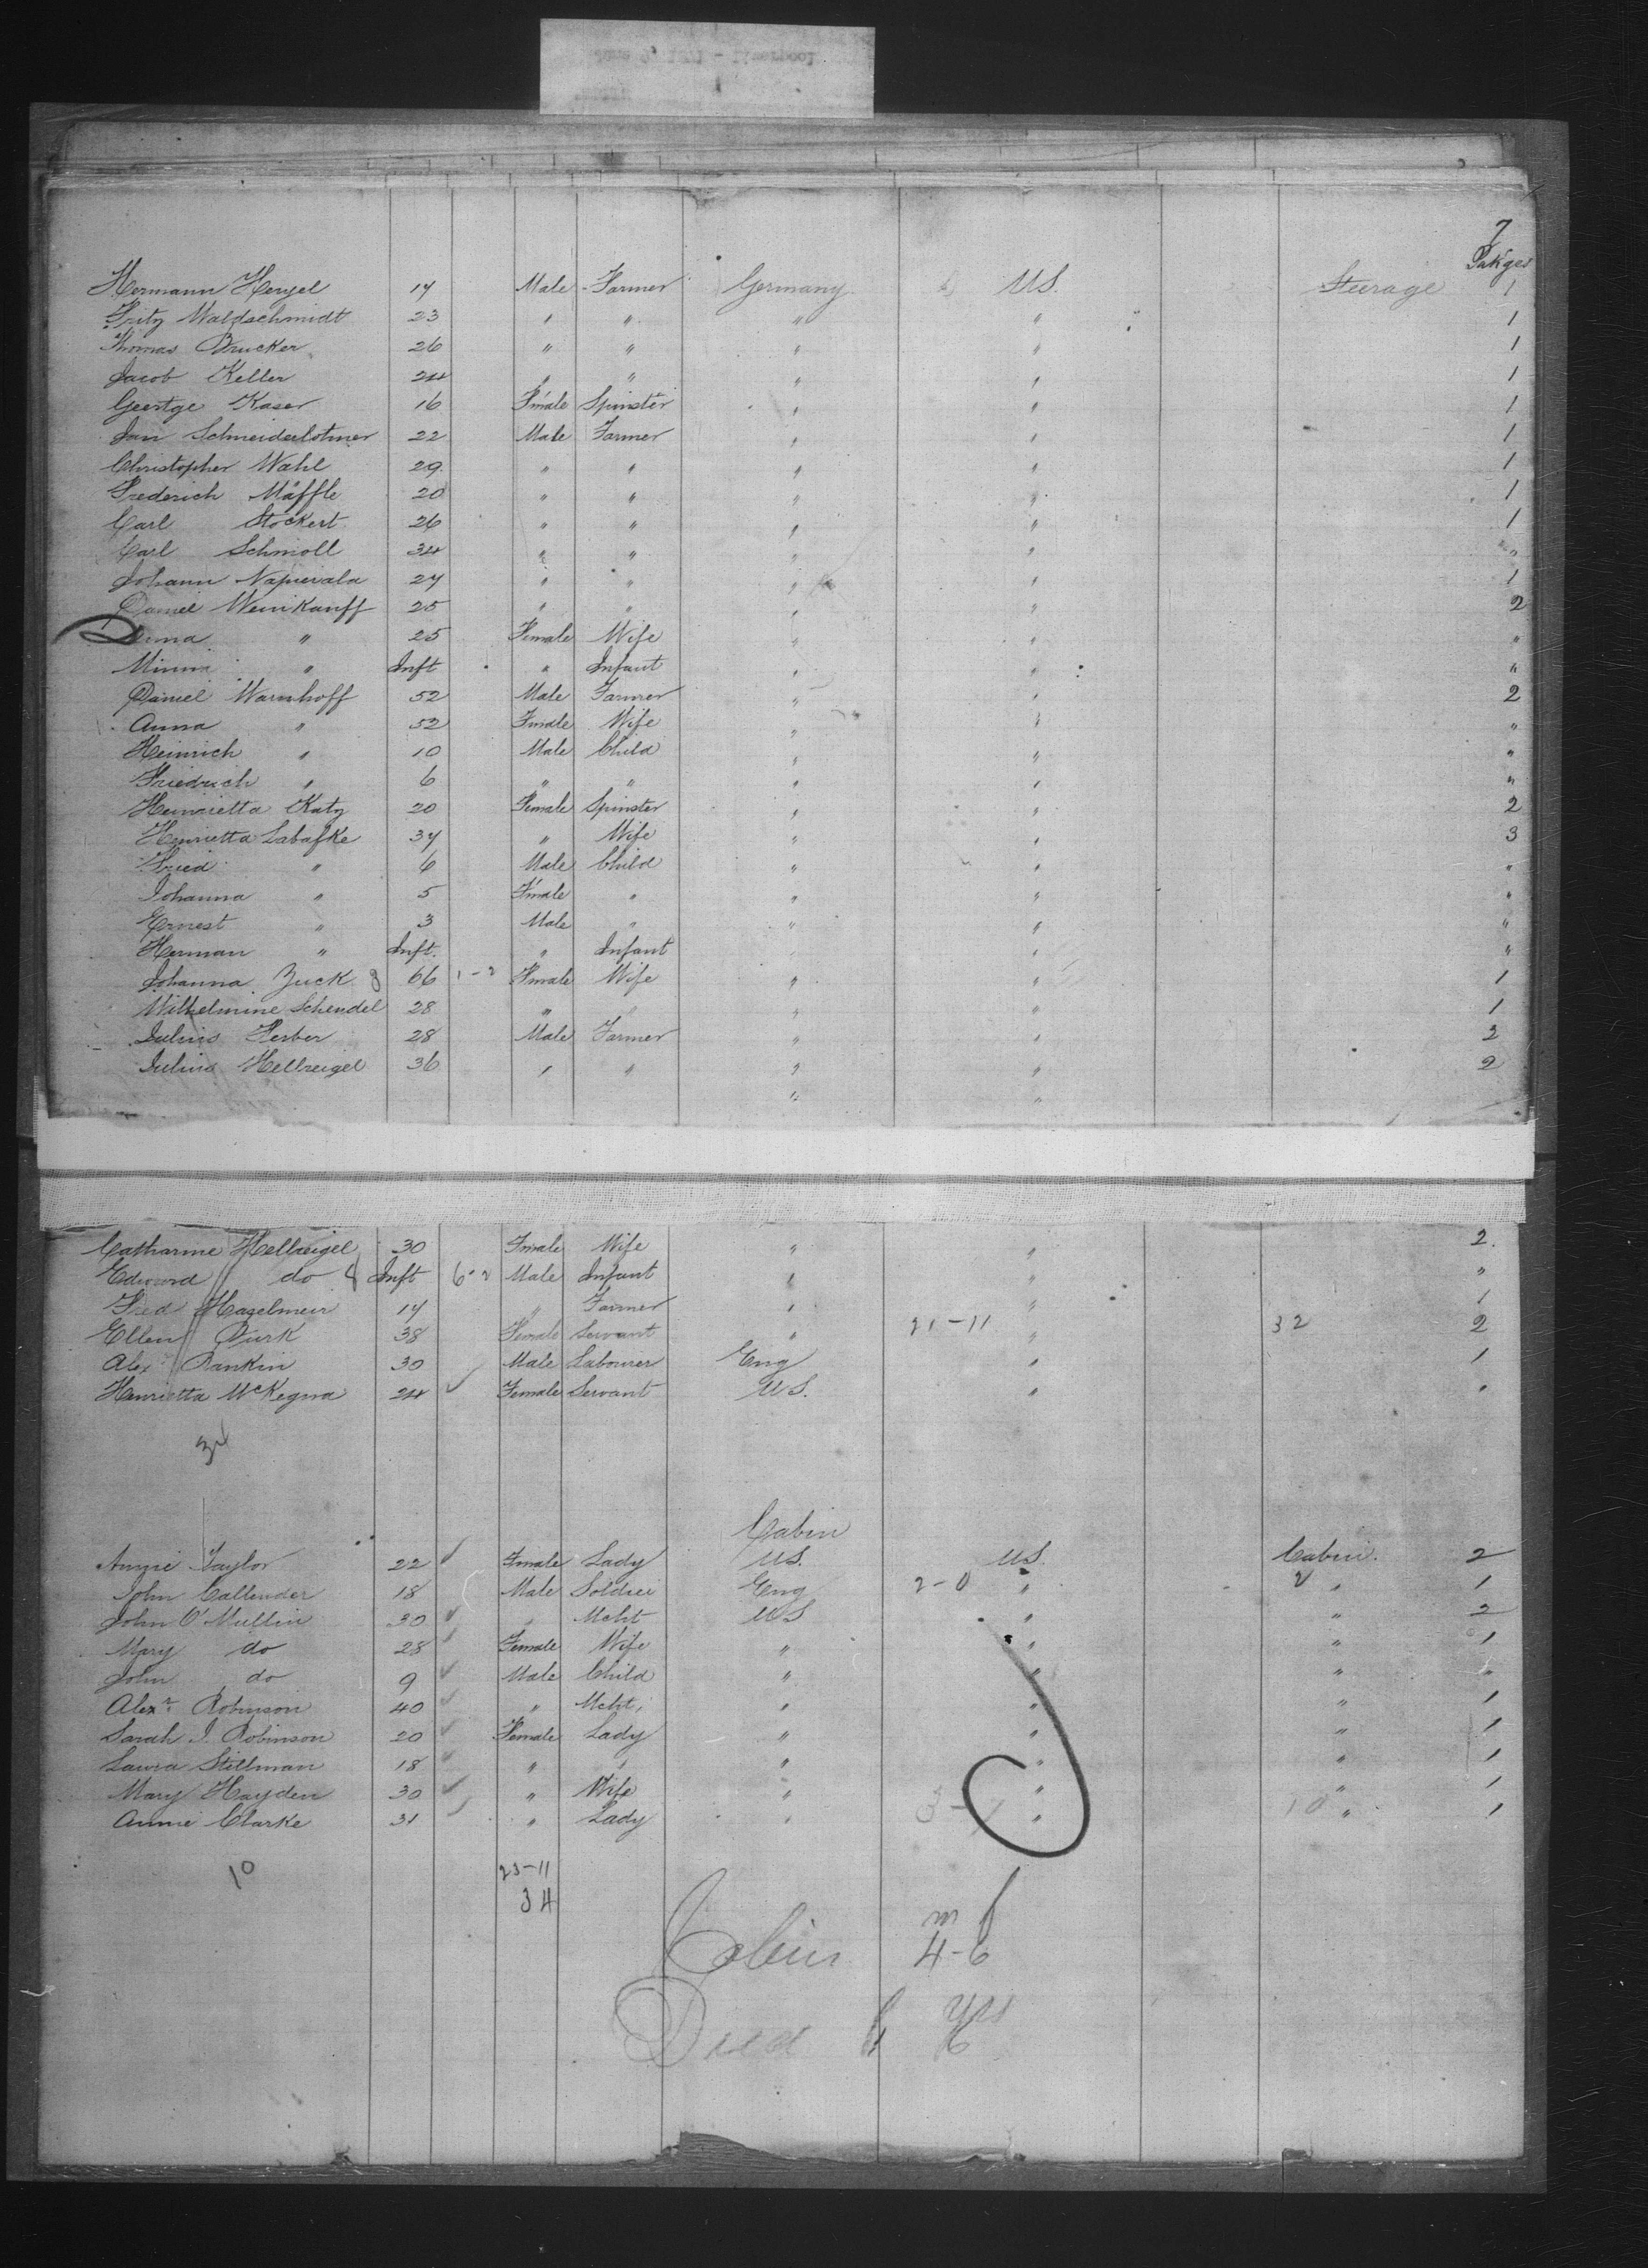 7
Pakges
Hermann Hengel 17 Male Farmer Germany US. Steerage 1
Fritz Waldschmidt 23 " " " " 1
Thomas Drucker 26 " " " " 1
Jacob Keller 24 " " " " 1
Geertge Kaser 16 Fmale Spinster " " 1
Jan 22 Male Farmer " " 1
Christopher Wahl 29 " " " " 1
Frederich Mäffle 20 " " " " 1
Carl Stockert 26 " " " " 1
Carl Schmoll 34 " " " " "
Johann Napierala 27 " " " " 1
Daniel Weinkauff 25 " " " " 2
" 25 Female Wife " " "
Minna " Inft " Infant " " "
Daniel Warnhoff 52 Male Farmer " " 2
Anna " 52 Female Wife " " "
Heinrich " 10 Male Child " " "
Friedrich " 6 " " " " "
Henrietta Katz 20 Female Spinster " " 2
Henrietta Labafke 37 " Wife " " 3
Fried " 6 Male Child " " "
Johanna " 5 Fmale " " " "
Ernest " 3 Male " " " "
Herman " Inft. " Infant " " "
Johanna Zuck 66 1-2 Female Wife " " 1
Wilhelmine Schendel 28 " " " " 1
Julius Ferber 28 Male Farmer " " 2
Julius Hellreigel 36 " " " " 2
" "
Catharine Hellreigel 30 Fmale Wife " " 2.
Edward do Inft 6-2 Male Infant " " "
Fred Hazelmeir 17 " Farmer " " 1
Ellen Durk 38 Female Servant " 21-11 " 32 2
Alexr Rankin 30 Male Labourer Eng " 1
Henrietta McKegna 24 Female Servant US. " "
34
Cabin
Annie Taylor 22 Fmale Lady US. US. Cabin. 2
John Callender 18 Male Soldier Eng 2-0 " 2 " 1
John O'Mullin 30 " Mcht US " " 2
Mary do 28 Female Wife " " " 1
John do 9 Male Child " " " "
Alexr Robinson 40 " Mcht " " " 1
Sarah J. Robinson 20 Female Lady " " " 1
Laura Stillman 18 " " " " " 1
Mary Hayden 30 " Wife " " " 1
Annie Clarke 31 " Lady " " 10 " 1
10
23-11
34
m f
Cabin 4-6
yrs
Died 6